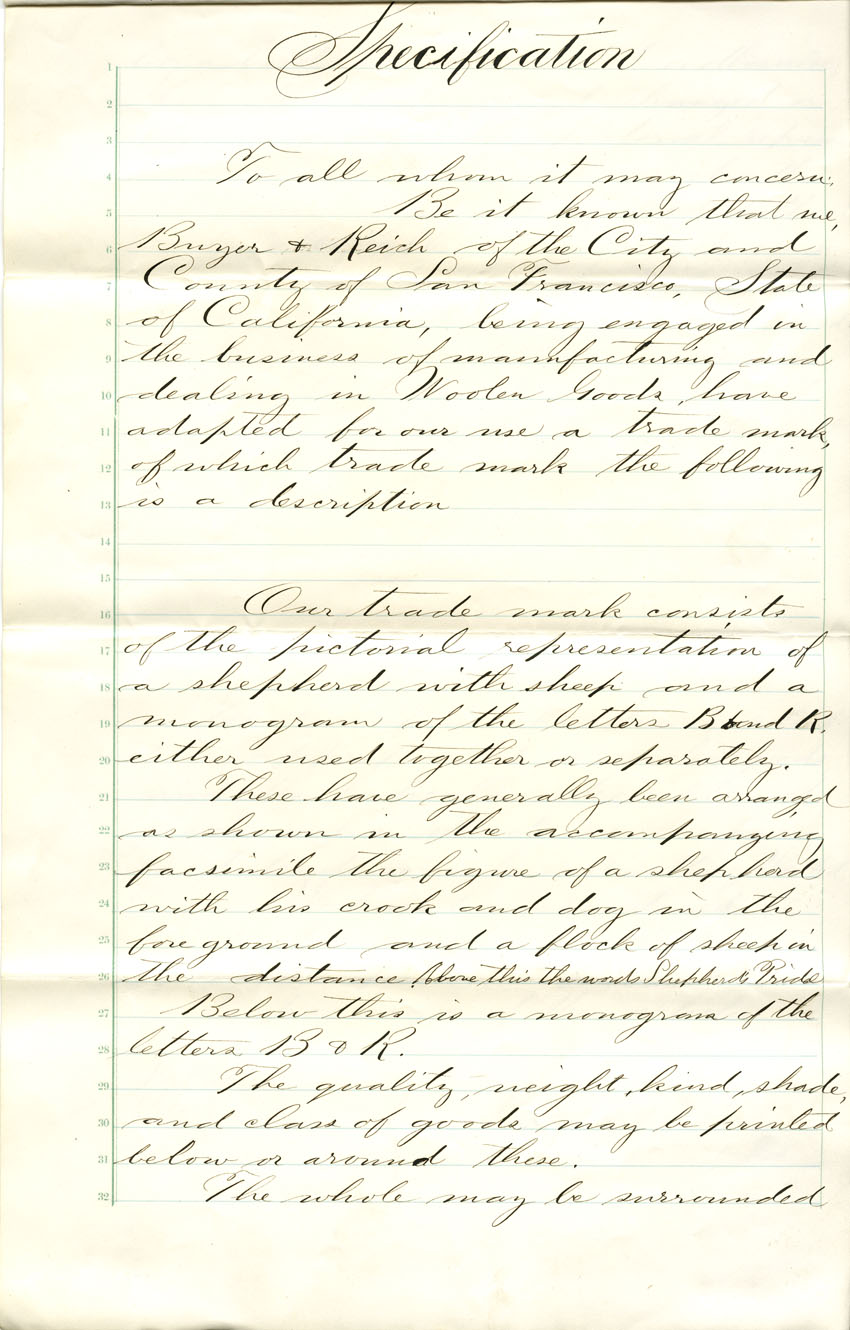 Specification
1
2
3
4 To all whom it may concern:
5 Be it known that we,
6 Buyer & Reich of the City and
7 County of San Francisco, State
8 of California, being engaged in
9 the business of manufacturing and
10 dealing in Woolen Goods, have
11 adapted for our use a trade mark,
12 of which trade mark the following
13 is a description
14
15
16 Our trade mark consists
17 of the pictorial representation of
18 a shepherd with sheep and a
19 monogram of the letters B and R.
20 either used together or separately.
21 These have generally been arranged
22 as shown in the accompanying
23 facsimile the figure of a shepherd
24 with his crook and dog in the
25 fore ground and a flock of sheep in
26 the distance. Above this the words Shepherd's Pride
27 Below this is a monogram of the
28 letters B & R.
29 The quality, weight, kind, shade,
30 and class of goods may be printed
31 below or around these.
32 The whole may be surrounded